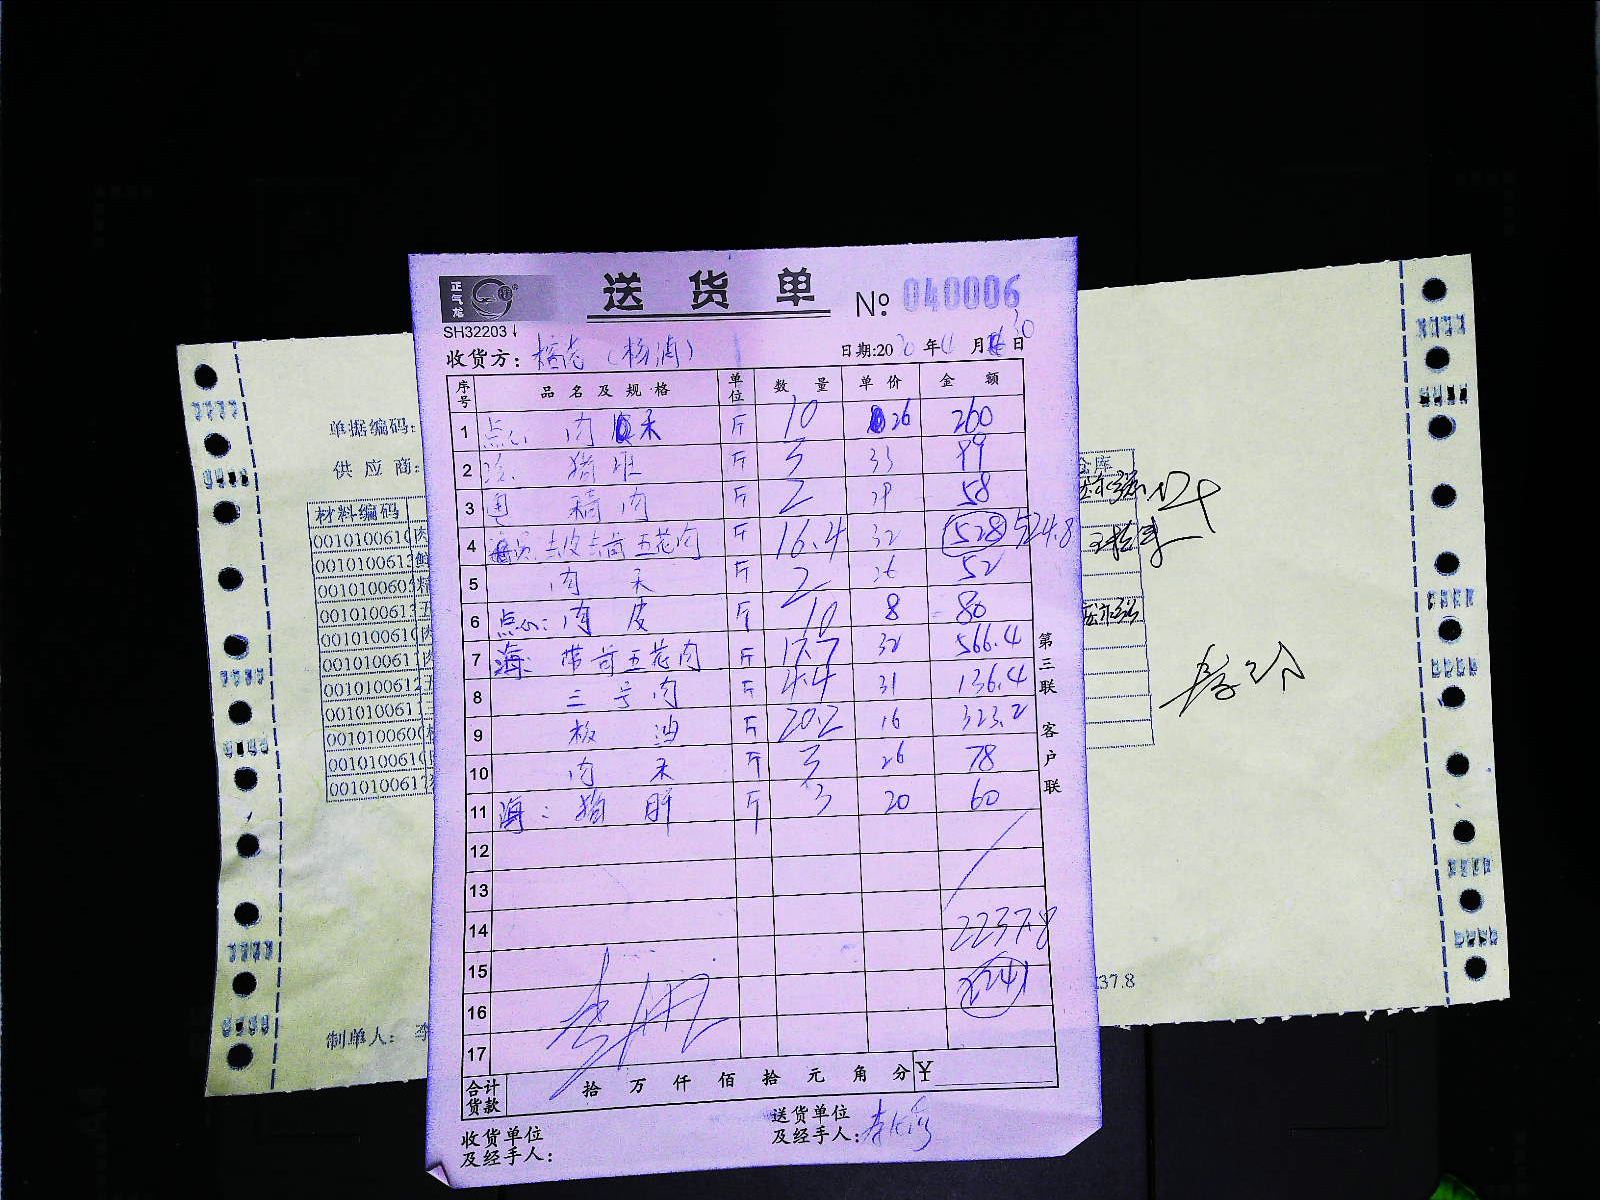 正气龙
送货单 № 040006
SH32203
收货方： （杨浦） 日期:2020年4月30日
序号 品名及规格 单位 数量 单价 金额
1 点心 肉 禾 斤 10 26 260
2 猪 斤 3 33 99
3 精肉 斤 2 29 58
4 去皮去前五花肉 斤 16.4 32 528 524.8
5 肉 禾 斤 2 26 52
6 点心: 肉 皮 斤 10 8 80
7 海: 带前五花肉 斤 17.7 32 566.4
8 三号肉 斤 4.4 31 136.4
9 板油 斤 20.2 16 323.2
10 肉 禾 斤 3 26 78
11 海: 猪肝 斤 3 20 60
12
13
14 2237.8
15
16 2241
17
合计货款 拾 万 仟 佰 拾 元 角 分 ¥
收货单位及经手人：
送货单位及经手人：
第三联 客户联
单据编码:
供应商:
材料编码
0010100610 肉
001010061
00101006 精
001010061 五
001010061 肉
001010061 肉
001010061 五
001010061 三
001010060
001010061
001010061
仓库
37.8
制单人： 李